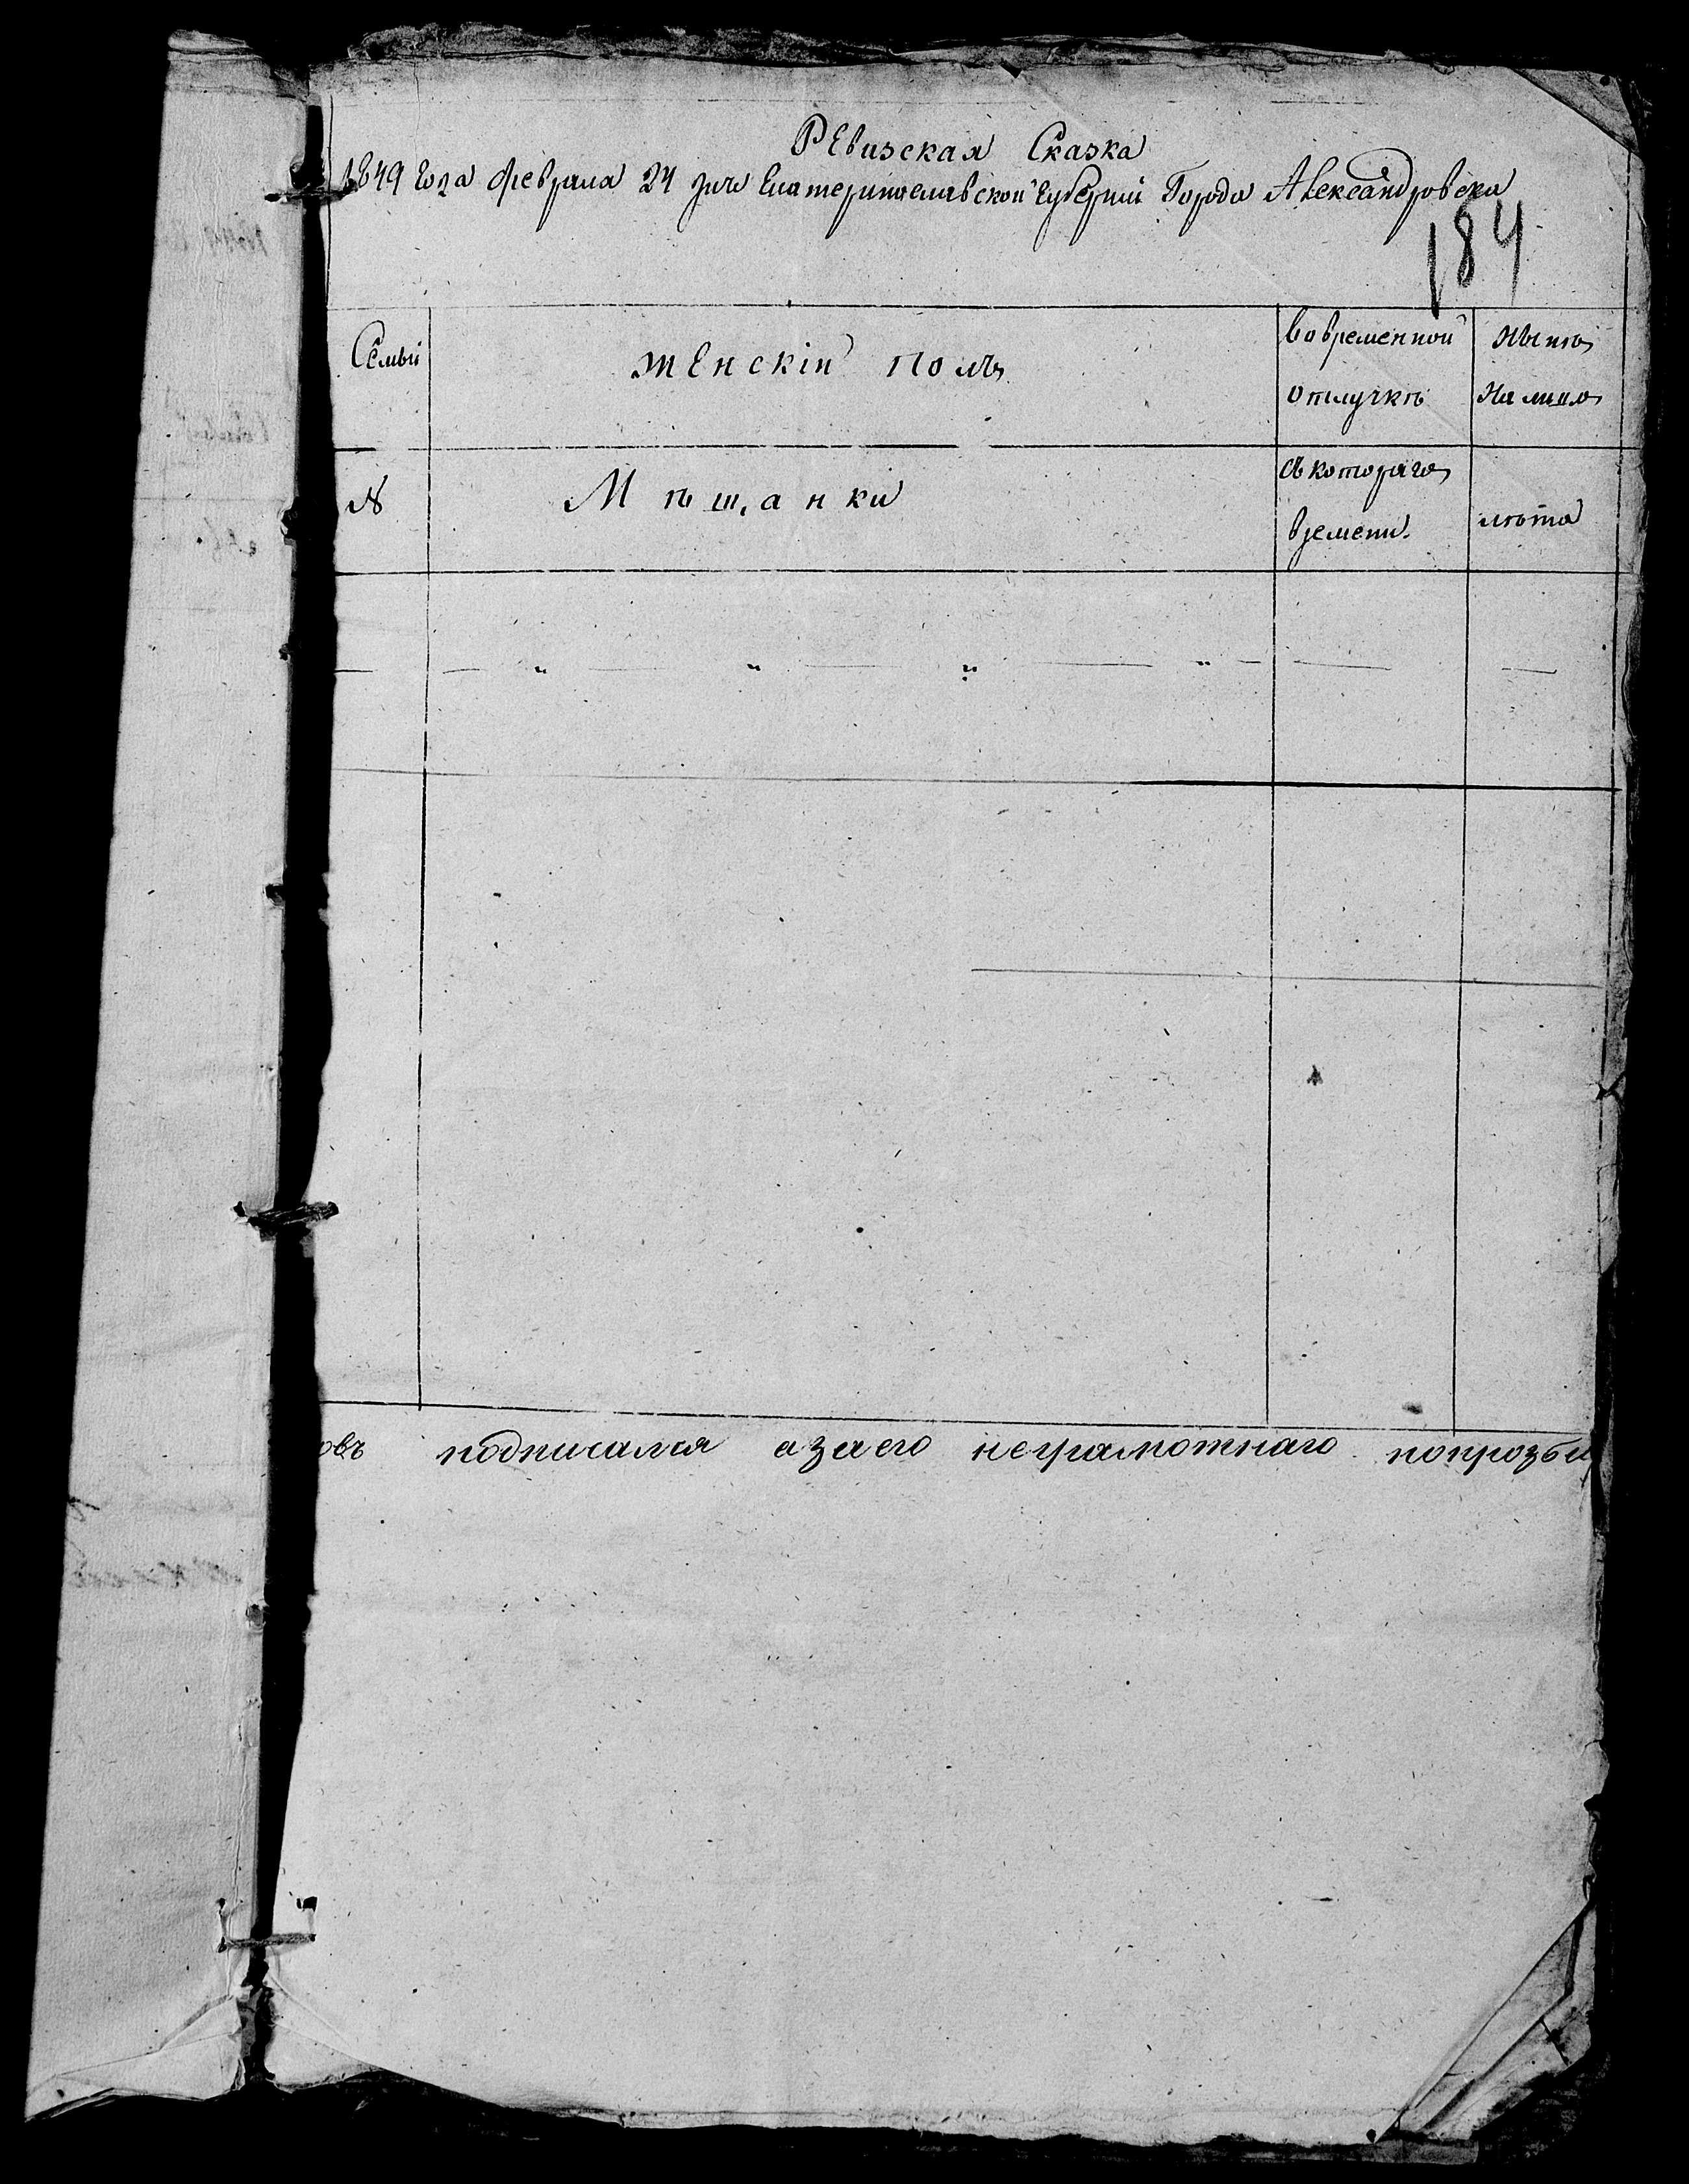 Ревизская Сказка
1849 года февраля 24 дня Екатеринославской Губерніи Города Александровска
184
Семьи
Женскій полъ
Вовременной
отлучкѣ
Нынѣ
На лицо
№
Мѣщанки
съ котораго
времени.
лѣта
— — „ — „ — „ — „ — — —
овъ подписался азаего неграмотнаго попрозби